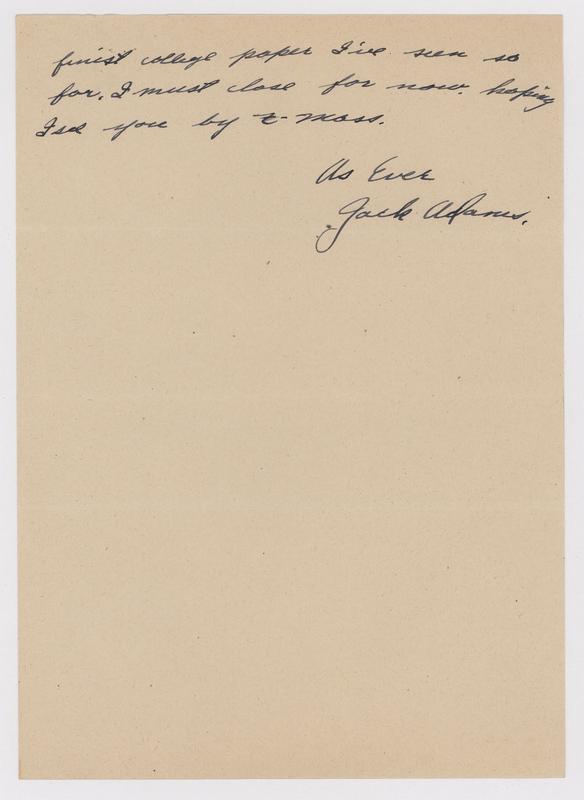 finist college paper I've seen so
far. I must close for now. hoping
I see you by X-mass.
As Ever
Jack Adams.